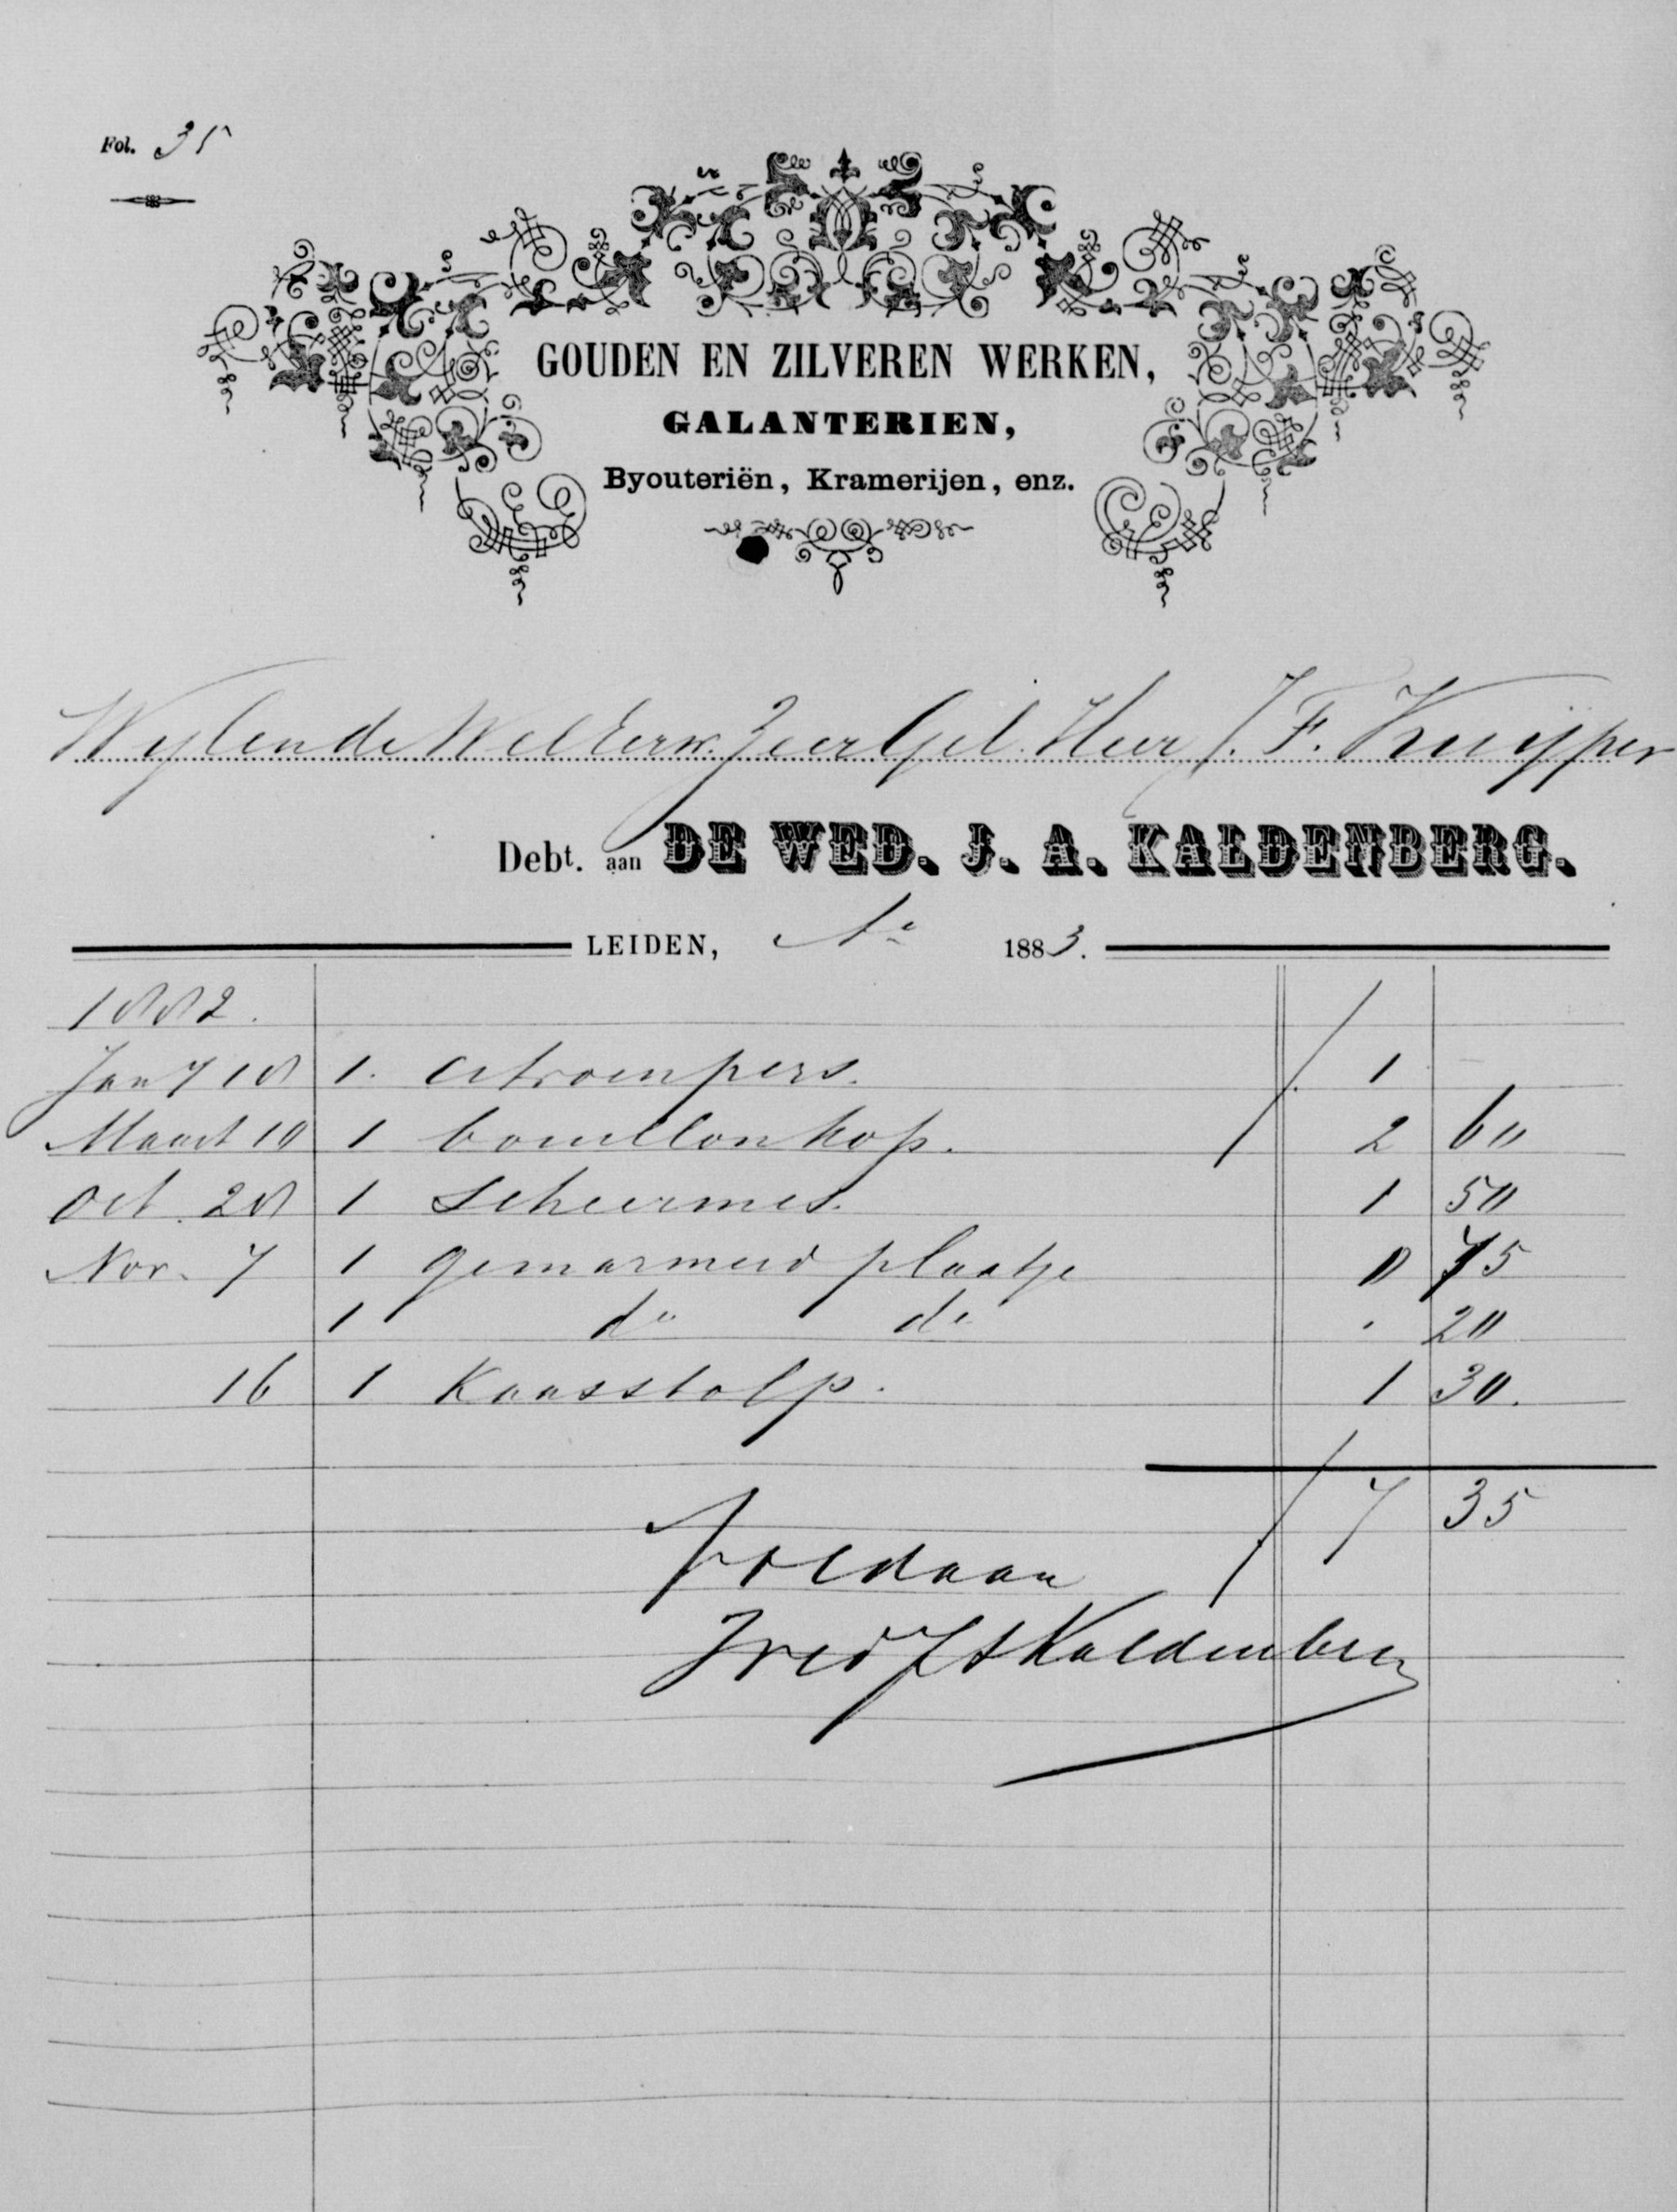 Fol. 35
GOUDEN EN ZILVEREN WERKEN,
GALANTERIEN,
Byouteriën, Kramerijen, enz.
Wylen de WelEerw. Zeer Gel. Heer J. F. Kuijper
Debt. aan DE WED. J. A. KALDENBERG.
LEIDEN, 1883.
1882.
Jan 18 1. citroenpers. f 1 -
Maart 10 1 bouillon kop. 2 60
Oct. 28 1 Scheermes. 1 50
Nov. 7 1 gemarmerd plaatje 0 75
1 do do . 20
16 1 Kaasstolp. 1 30.
f 7 35
Voldaan
Wed J A Kaldenberg